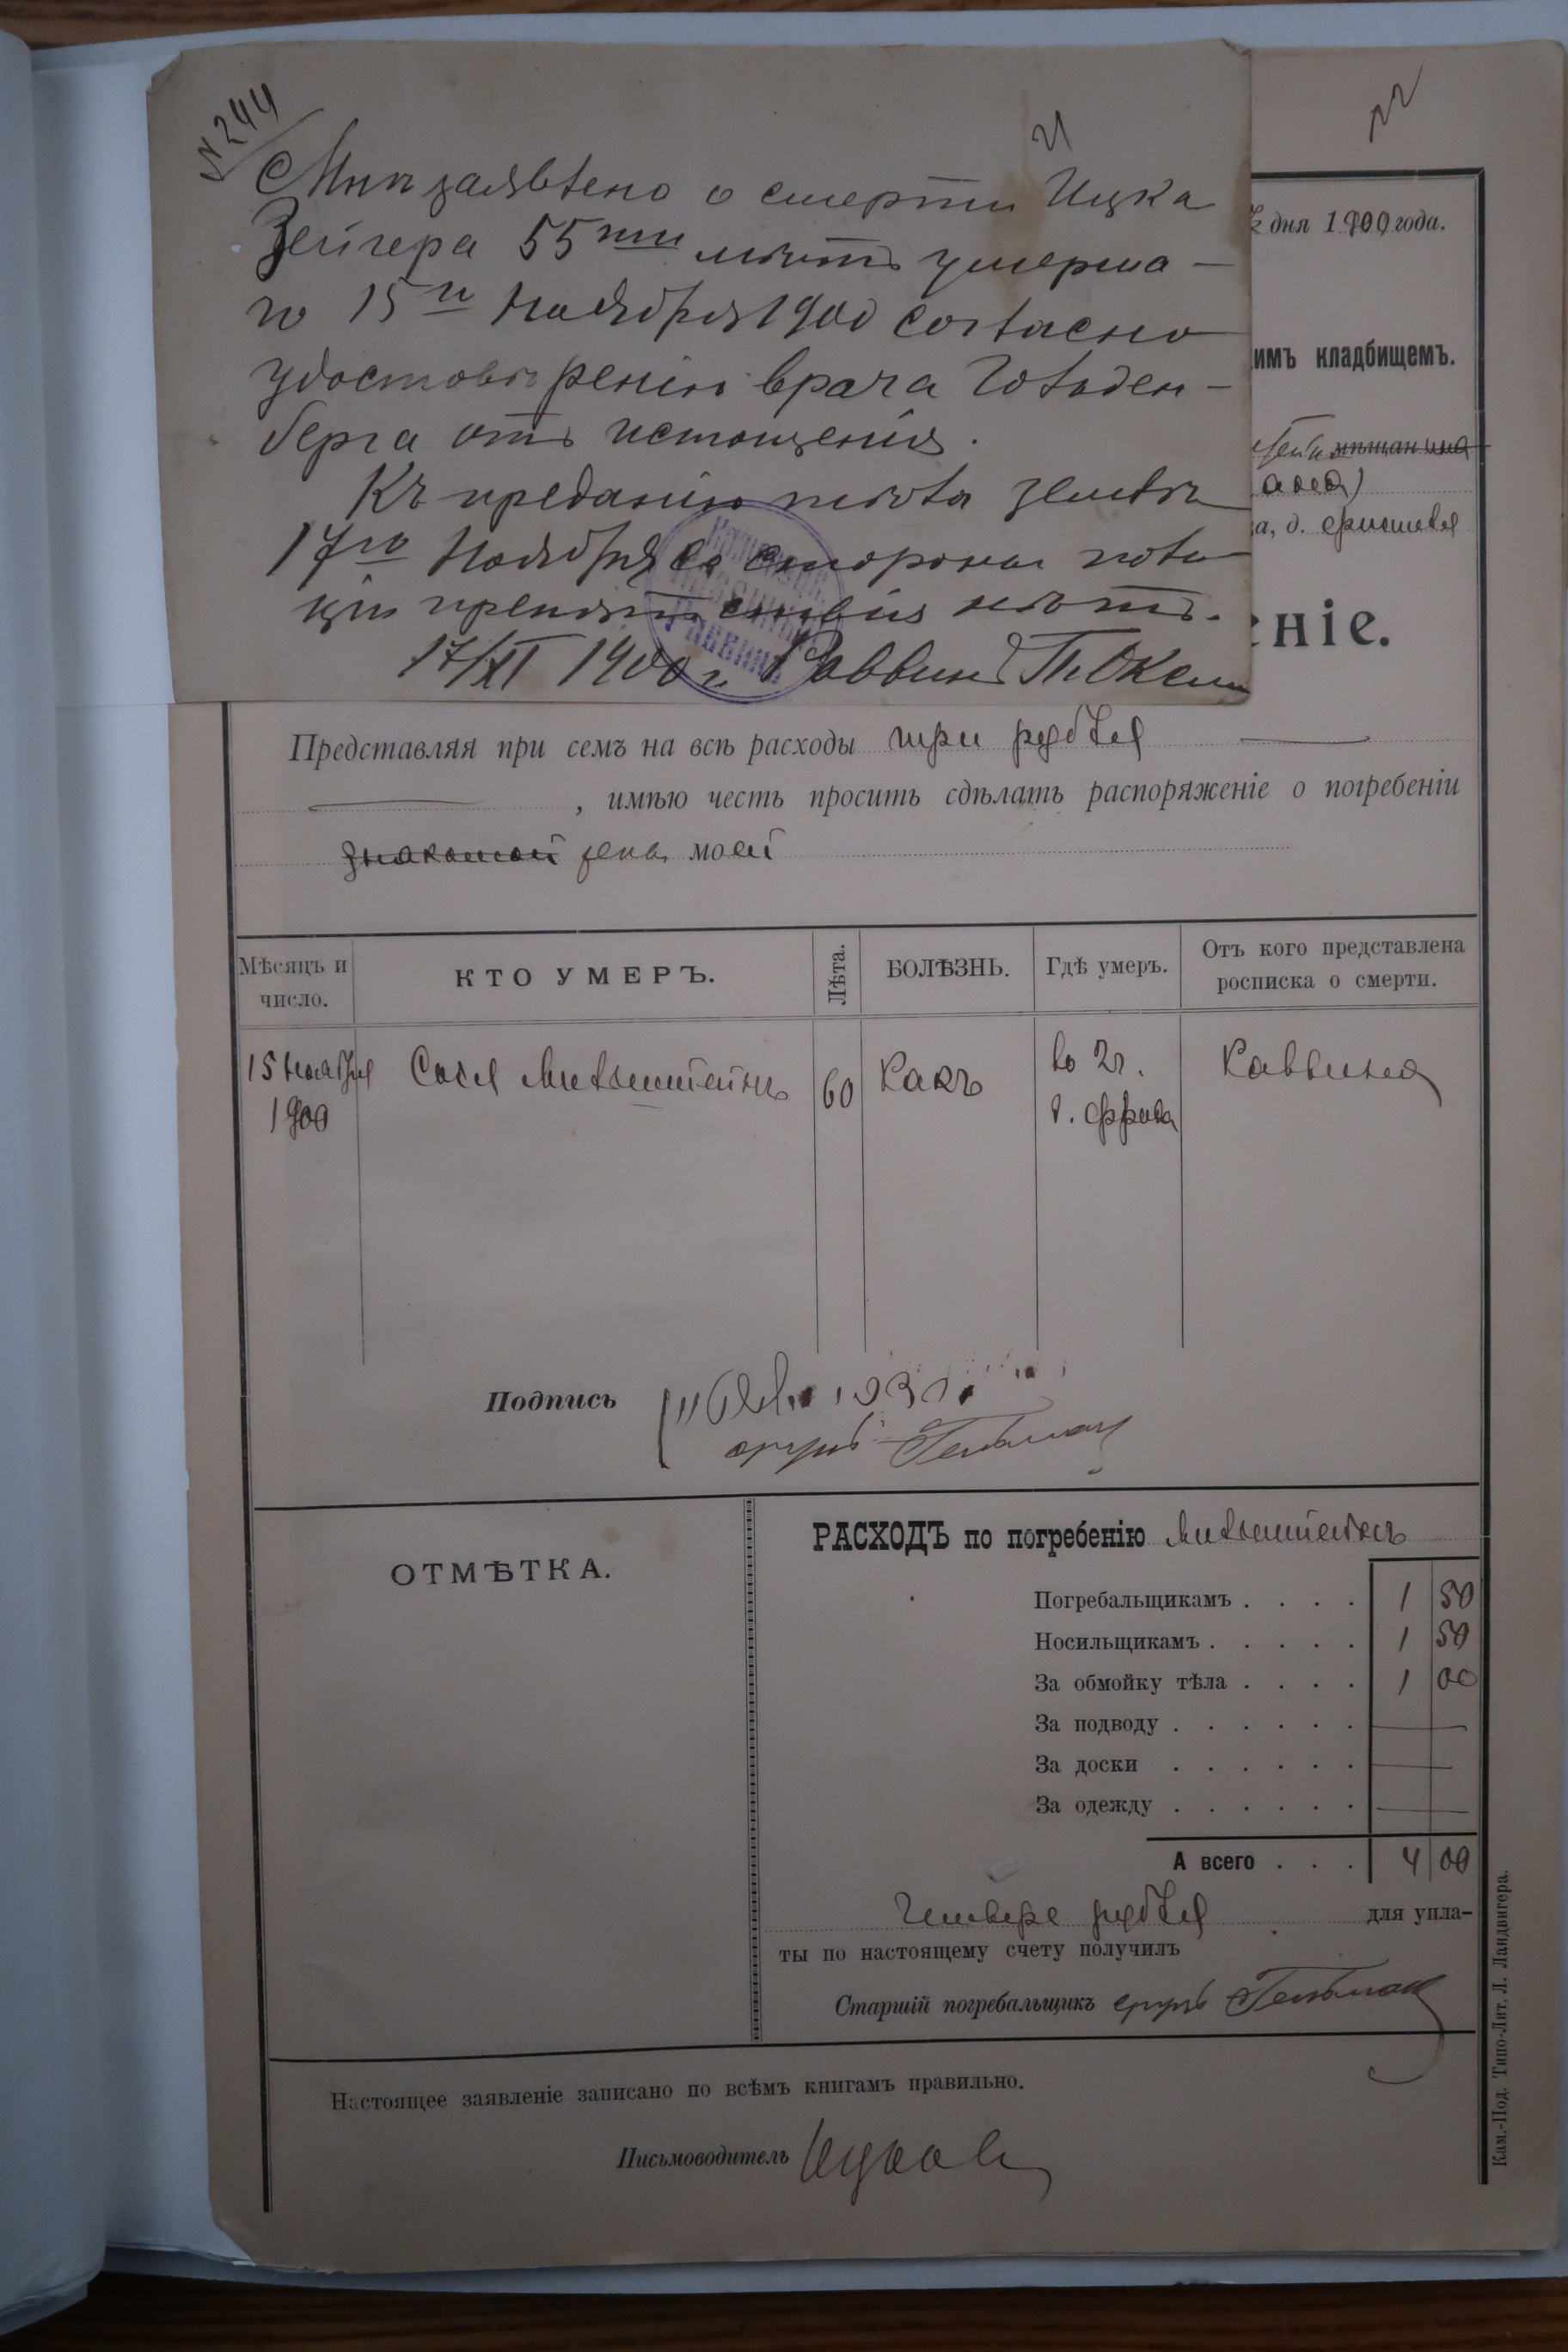 N 244
21
Мнѣ заявлено о смерти Ицка
Зейгера 55ти лѣтъ умерша-
го 15го Ноября 1900 согласно
удостовѣренію врача Гольден-
берга отъ истощенія.
Къ преданію тѣла землѣ
17го Ноября со стороны поли
ціи препятствія нѣтъ.
17/XI 1900 г. Раввинъ
22
дня 1900 года.
имъ кладбищемъ.
а, д.
ніе.
Представляя при семъ на всѣ расходы три рубля
, имѣю честь просить сдѣлать распоряженіе о погребеніи
знакомой моей
Мѣсяцъ и число.
КТО УМЕРЪ.
Лѣта.
БОЛѢЗНЬ.
Гдѣ умеръ.
Отъ кого представлена росписка о смерти.
15 Ноября 1900
Сося Мильштейнъ
60
Ракъ
во 2 г.
д.
Раввина
Подпись
ОТМѢТКА.
РАСХОДЪ по погребенію Мильштейнъ
Погребальщикамъ . . . . 1 50
Носильщикамъ . . . . . 1 50
За обмойку тѣла . . . . 1 00
За подводу . . . . . .
За доски . . . . . .
За одежду . . . . . .
А всего . . . 4 00
рубля для упла-
ты по настоящему счету получилъ
Старшій погребальщикъ
Настоящее заявленіе записано по всѣмъ книгамъ правильно.
Письмоводитель
Кам.-Под. Типо-Лит. Л. Ландвигера.